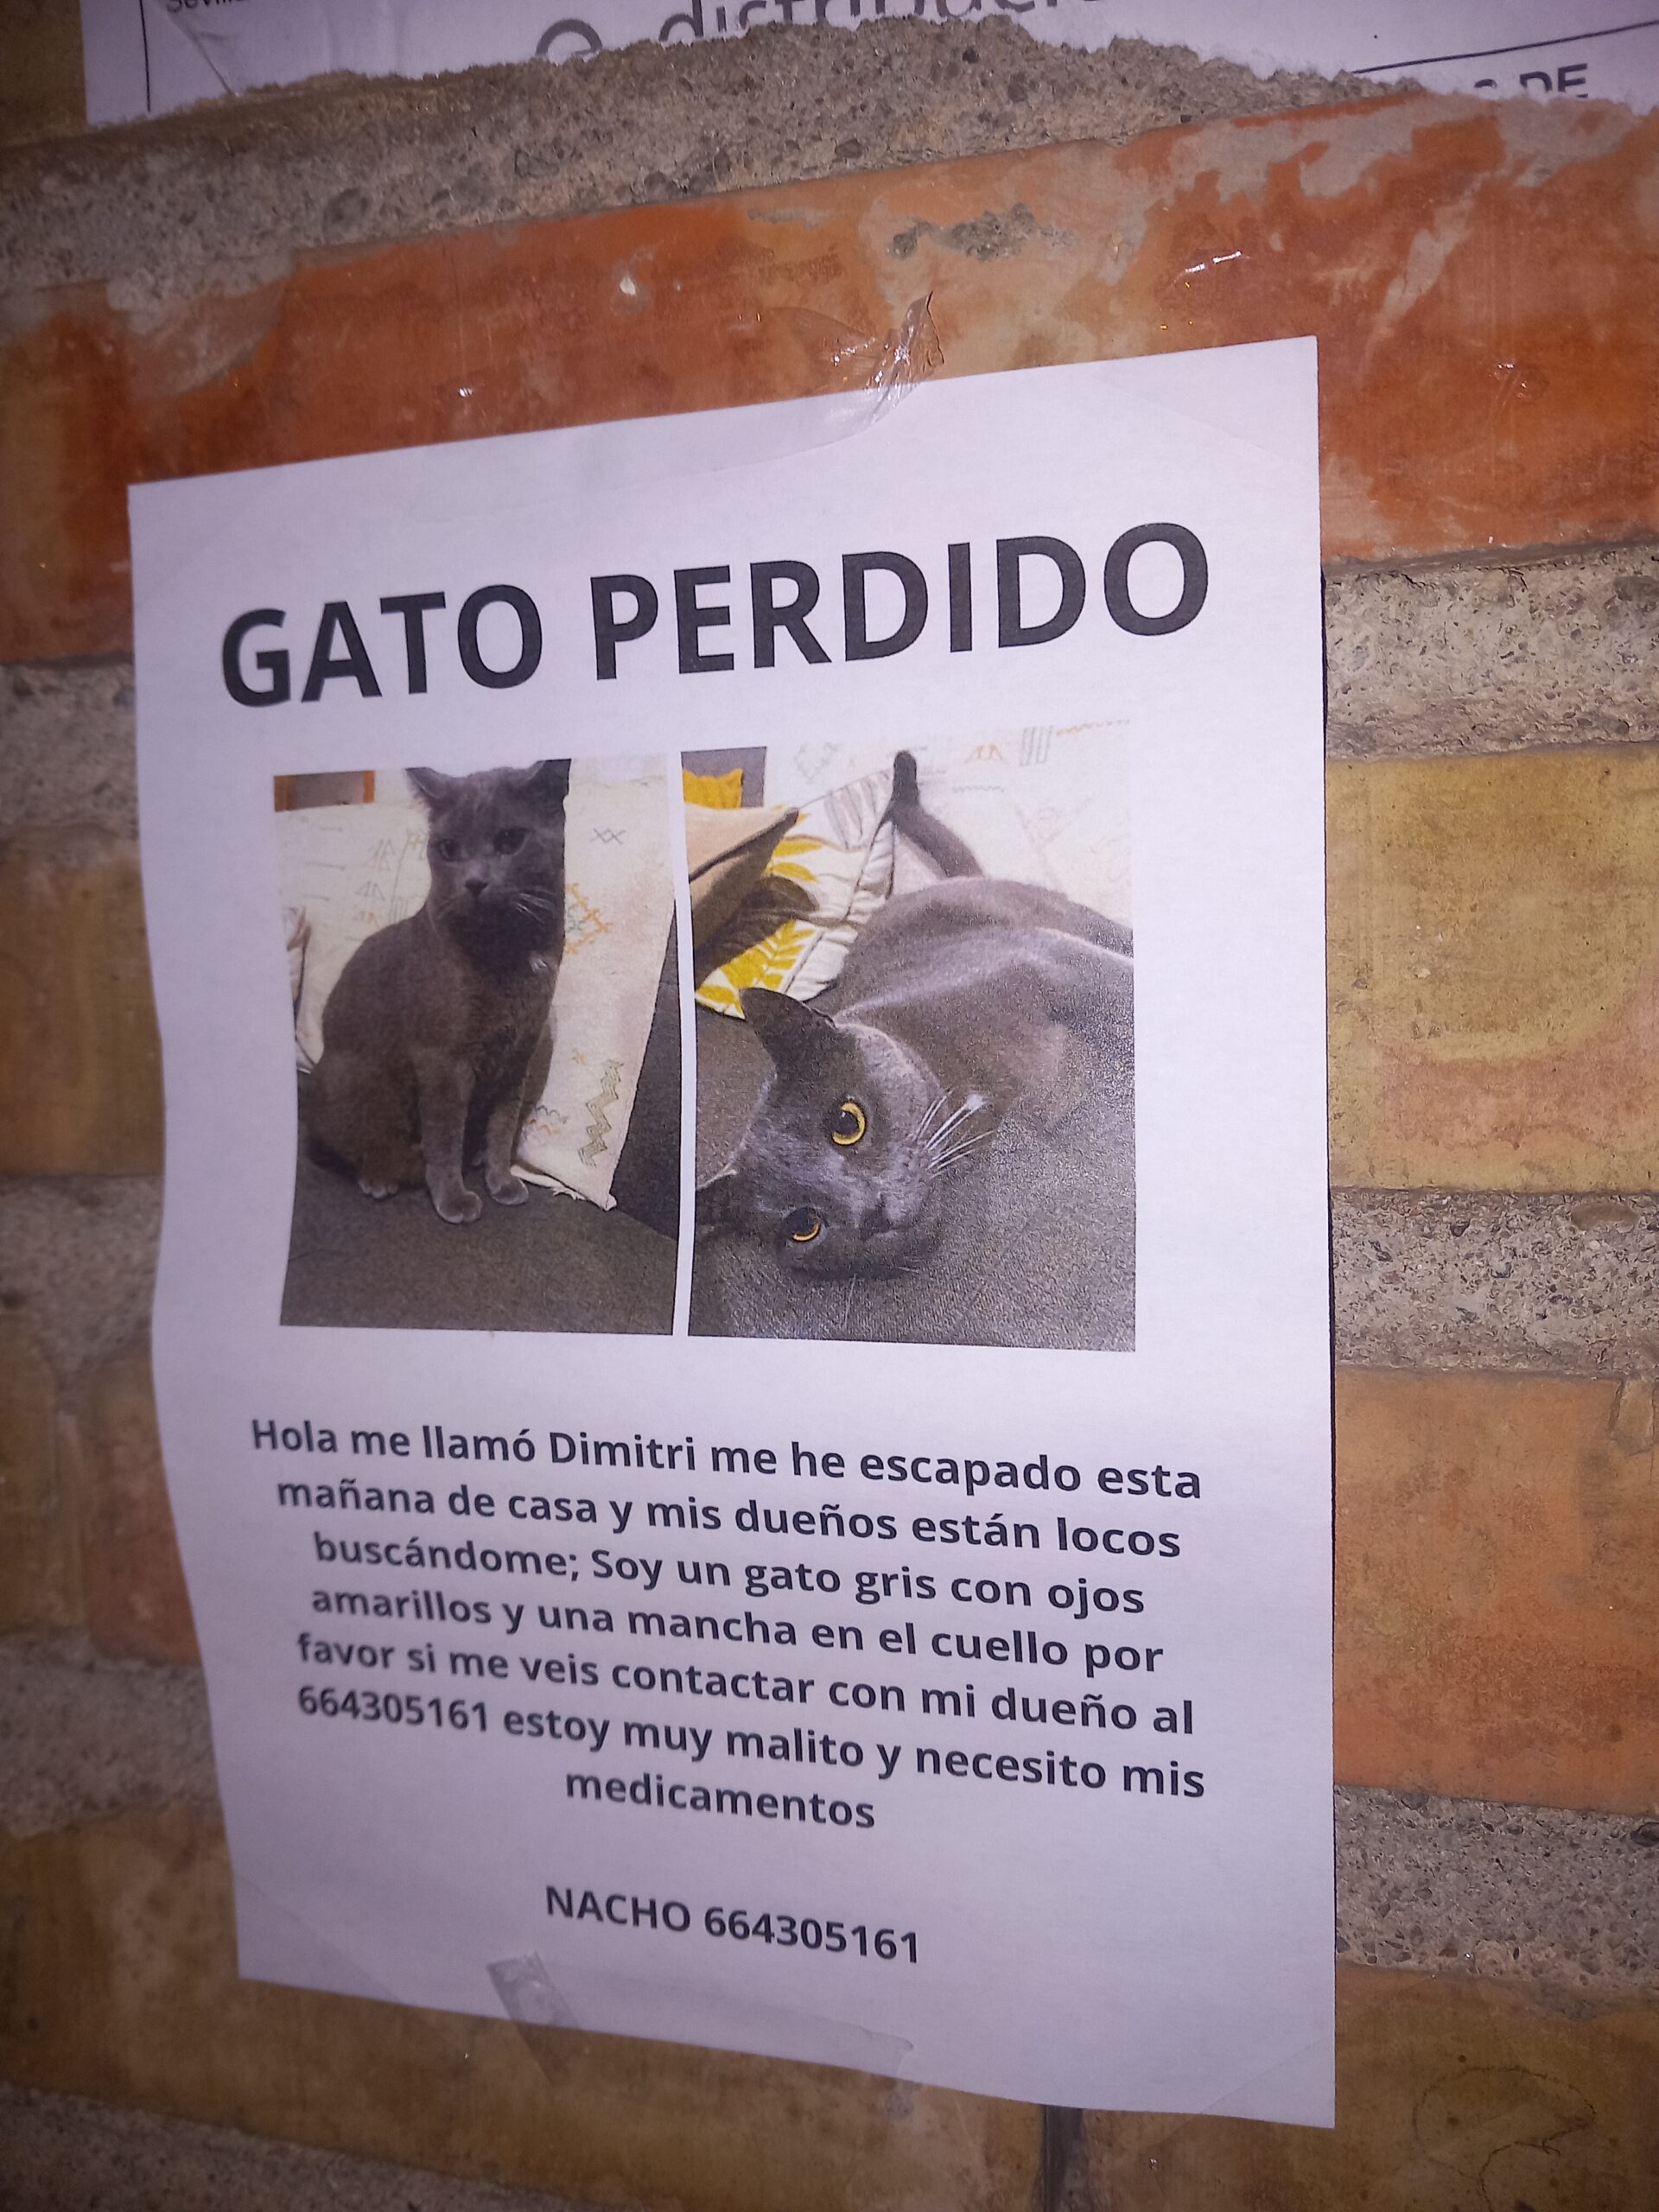 GATO PERDIDO
Hola me llamó Dimitri me he escapado esta
mañana de casa y mis dueños están locos
buscándome; Soy un gato gris con ojos
amarillos y una mancha en el cuello por
favor si me veis contactar con mi dueño al
664305161 estoy muy malito y necesito mis
medicamentos
NACHO 664305161